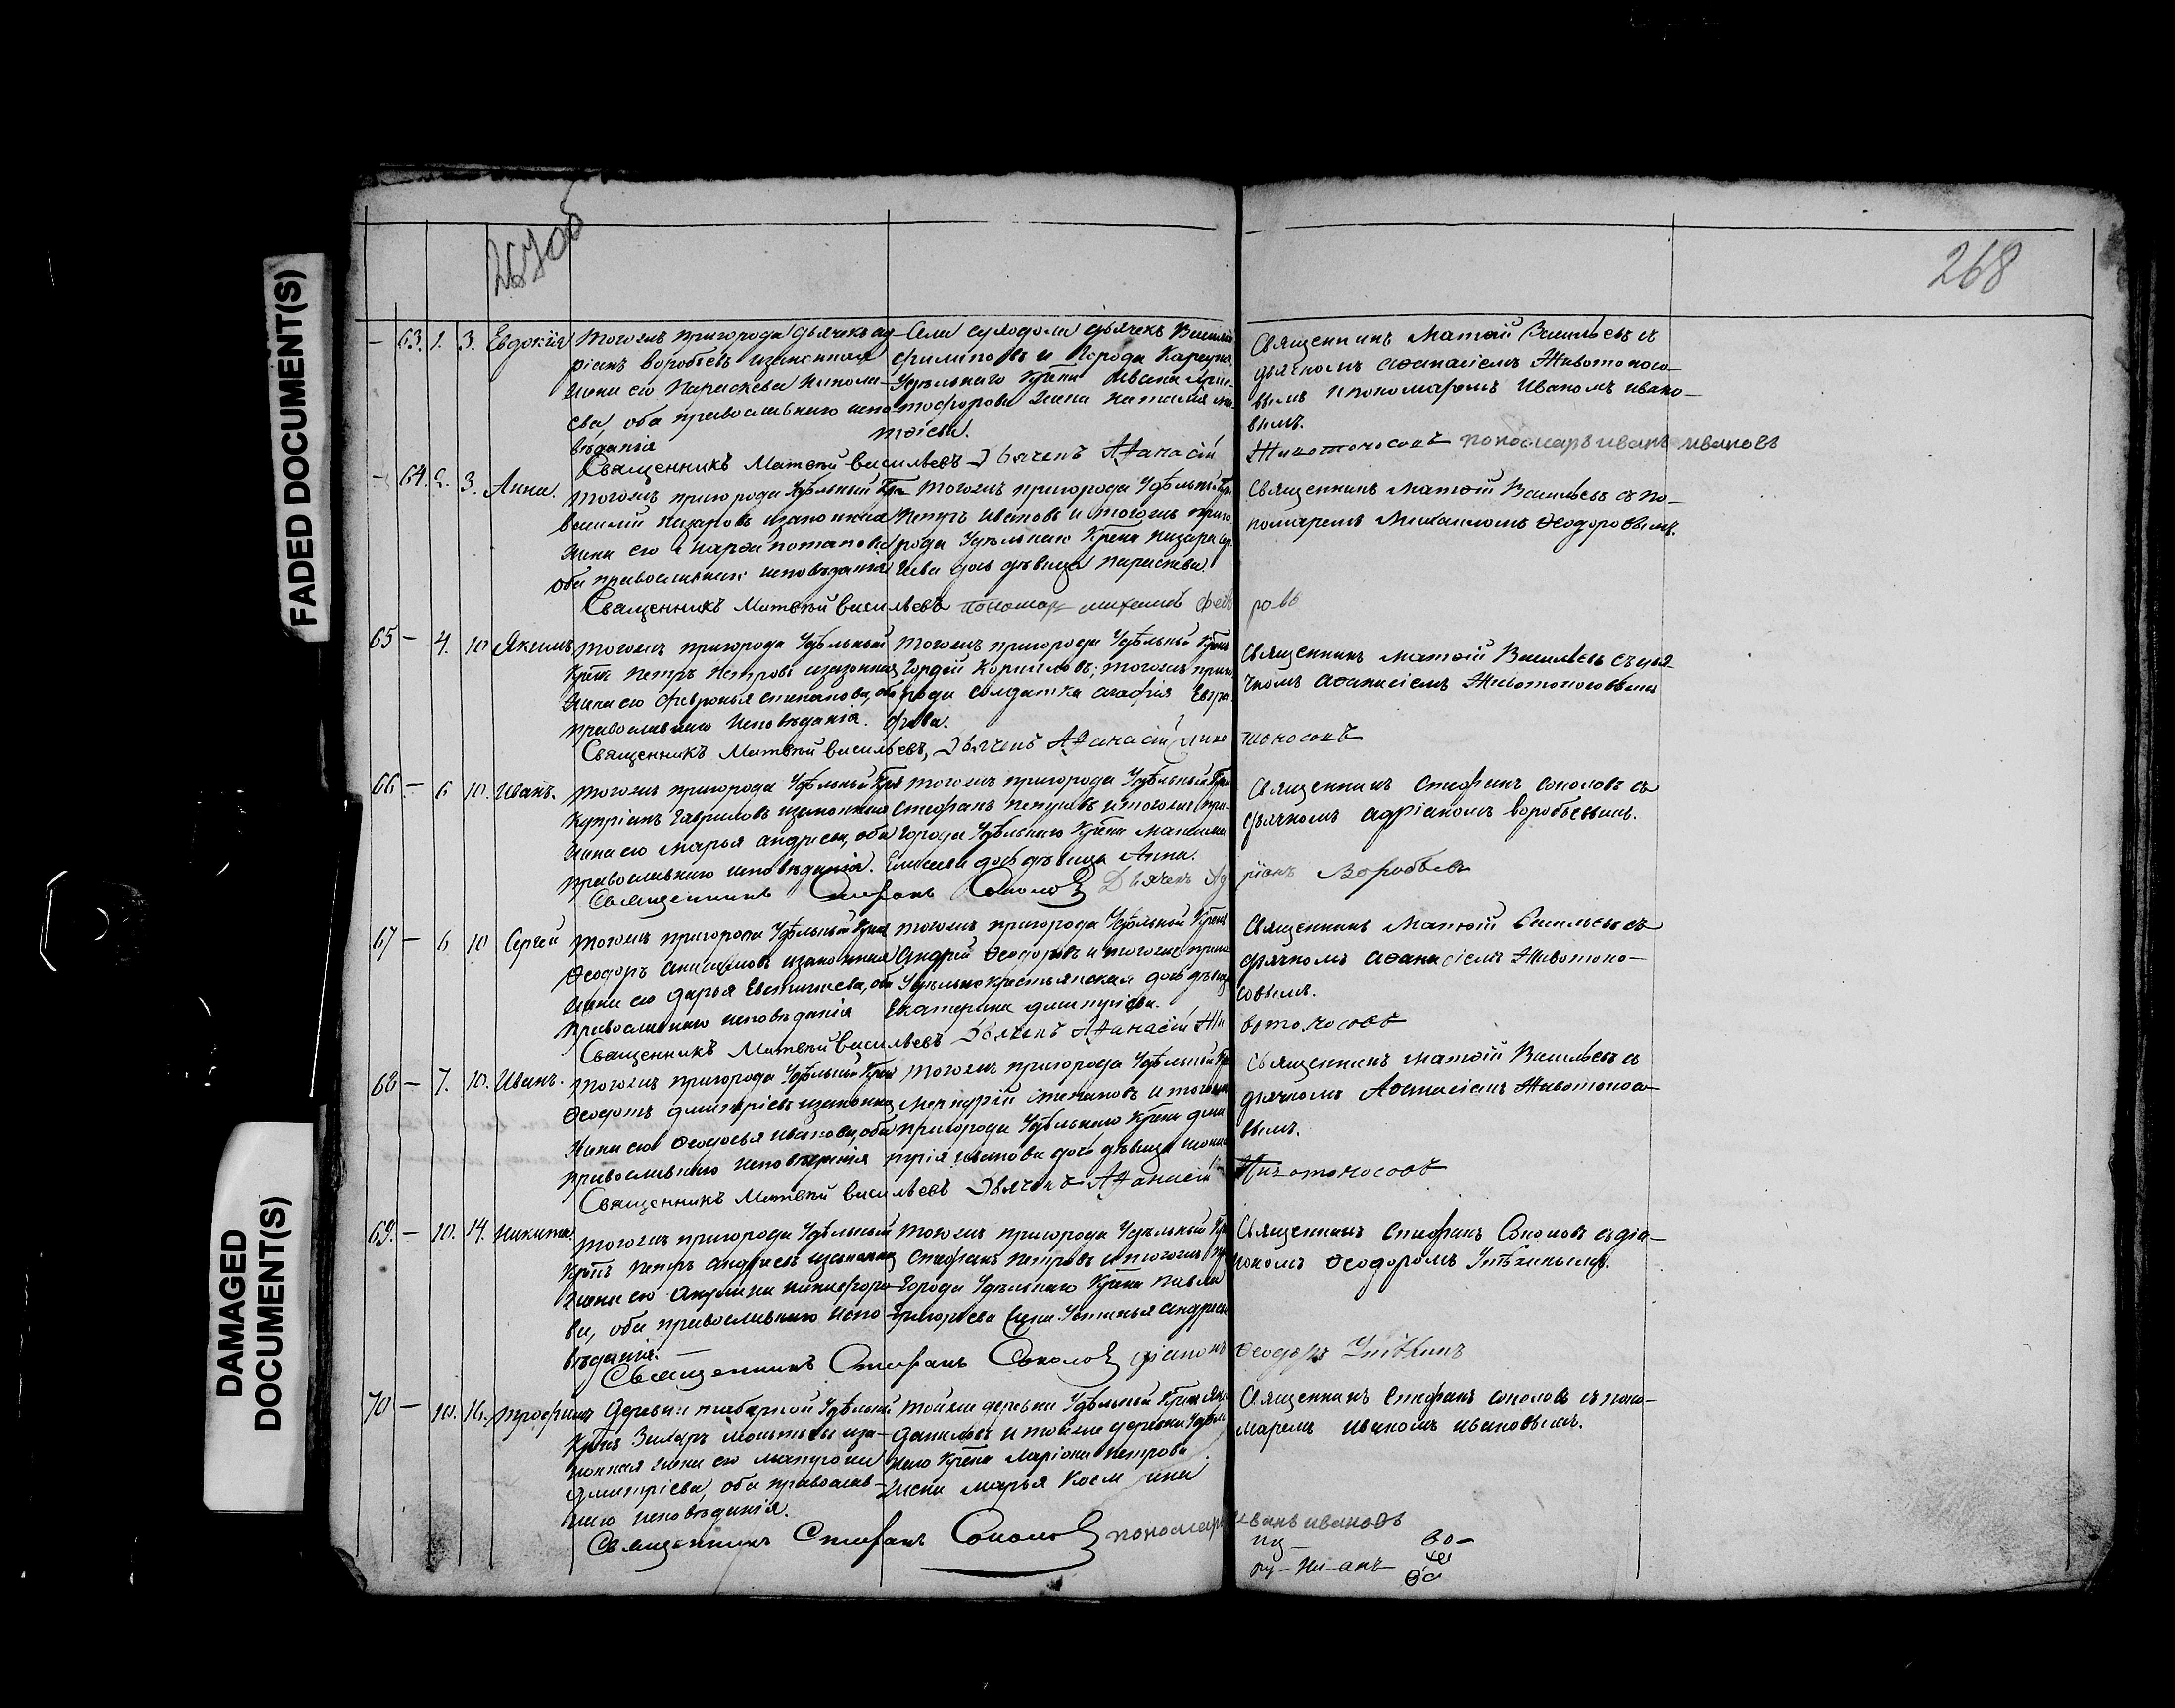 FADED DOCUMENT(S)
DAMAGED
DOCUMENT(S)
267 об
268
— 63. 1. 3. Евдокія Тогожъ пригорода дьячекъ ад-
ріанъ воробьевъ изаконная
жена его Параскева Никола-
ева, оба православнаго испо-
вѣданія
Села суходола дьячекъ Василій
филиповъ и Города Карсуна
Удѣльнаго Крѣна Ивана Хрис-
тофорова жена Наталья ма-
тѳіева.
Священникъ Матѳій Васильевъ съ
дьячкомъ аѳанасіемъ Животоносо-
вымъ и пономаремъ Иваномъ ивано-
вымъ.
Священникъ Матвѣй Васильевъ Дьячекъ Афанасій Животоносовъ пономарь иванъ ивановъ
— 64. 2. 3. Анна. Тогожъ пригорода Удѣльный Крѣ
василій Назаровъ изаконная
жена его Марѳа потапова
оба православнаго исповѣданія
Тогожъ пригорода Удѣльный
Петръ Ивановъ и тогожъ приго
рода Удѣльнаго Крѣна Назара
дочь дѣвица параскева.
Священникъ Матѳій Васильевъ съ по-
номаремъ Михаиломъ Ѳеодоровымъ.
Священникъ Матвѣй Васильевъ пономарь михаилъ федоровъ
65 — 4. 10 Якимъ Тогожъ пригорода Удѣльный
Крѣнъ Петръ Петровъ изаконная
жена его Февронья степанова, оба
православнаго исповѣданія.
Тогожъ пригорода Удѣльный Крѣнъ
Гордѣй Корниловъ; тогожъ приго
рода солдатка агафія Евгра-
фова.
Священникъ Матѳій Васильевъ съ дья-
чкомъ аѳанасіемъ Животоносовымъ
Священникъ Матвѣй Васильевъ, Дьячекъ Афанасій Животоносовъ
66 — 6 10. Иванъ. Тогожъ пригорода Удѣльный Крѣ
Купріанъ Гавриловъ изаконная
жена его марья андреева, оба
православнаго исповѣданія.
Тогожъ пригорода Удѣльный Крѣн
Стефанъ Петровъ и тогожъ при-
города Удѣльнаго Крѣна Максима
Елисеева дочь дѣвица Анна.
Священникъ Стефанъ соколовъ съ
дьячкомъ адріаномъ воробьевымъ.
Священникъ Стефанъ Соколовъ Дьячекъ Адріанъ Воробьевъ
67 — 6 10 Сергей Тогожъ пригорода Удѣльный Крѣнъ
Ѳеодоръ анисимовъ изаконная
жена его дарья Евстигнеева, оба
православнаго исповѣданія
Тогожъ пригорода Удѣльной Крѣнъ
Андрей Ѳеодоровъ и тогожъ приго
Удѣльнокрестьянская дочь дѣвица
Екатерина дмитріева.
Священникъ Матѳій Васильевъ съ
дьячкомъ аѳанасіемъ Животоно-
совымъ.
Священникъ Матвѣй Васильевъ Дьячекъ Афанасій Животоносовъ
68 — 7. 10. Иванъ. Тогожъ пригорода Удѣльный Крѣн
Ѳеодотъ дмитріевъ изаконная
жена его Ѳеодосья иванова, оба
православнаго исповѣданія
Тогожъ пригорода Удѣльный
Меркурій степановъ и тогожъ
пригорода Удѣльнаго Крѣна дми
трія иванова дочь дѣвица
Священникъ Матѳій Васильевъ съ
дьячкомъ Аѳанасіемъ Животоносо-
вымъ.
Священникъ Матвѣй Васильевъ Дьячекъ Афанасій Животоносовъ
69. — 10. 14. Никита. Тогожъ пригорода Удѣльный
Крѣнъ Петръ андреевъ изаконная
жена его Акулина никифоро-
ва, оба православнаго испо-
вѣданія.
Тогожъ пригорода Удѣльный Крѣ
Стефанъ Петровъ и тогожъ при
города Удѣльнаго Крѣна павла
Григорьева жена Устинья андреева
Священникъ Стефанъ Соколовъ съ діа-
кономъ Ѳеодоромъ
Священникъ Стефанъ Соколовъ діаконъ Ѳеодоръ
70 — 10. 16. Трофимъ Деревни табарной Удѣльный
Крѣнъ иза-
конная жена его
дмитріева, оба православ-
наго исповѣданія.
Тойже деревни Удѣльный Крѣнъ
даниловъ и тойже деревни Удѣль
наго Крѣна Ларіона петрова
жена марья Косм ина
Священникъ Стефанъ соколовъ съ поно-
маремъ иваномъ ивановымъ.
Священникъ Стефанъ Соколовъ пономарь иванъ ивановъ